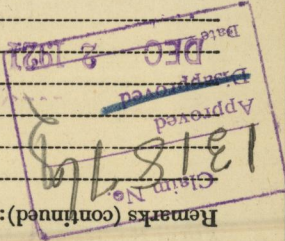 Remarks (continued):
Claim No.
131876
Approved
Disapproved
DEC 2 1921
Date